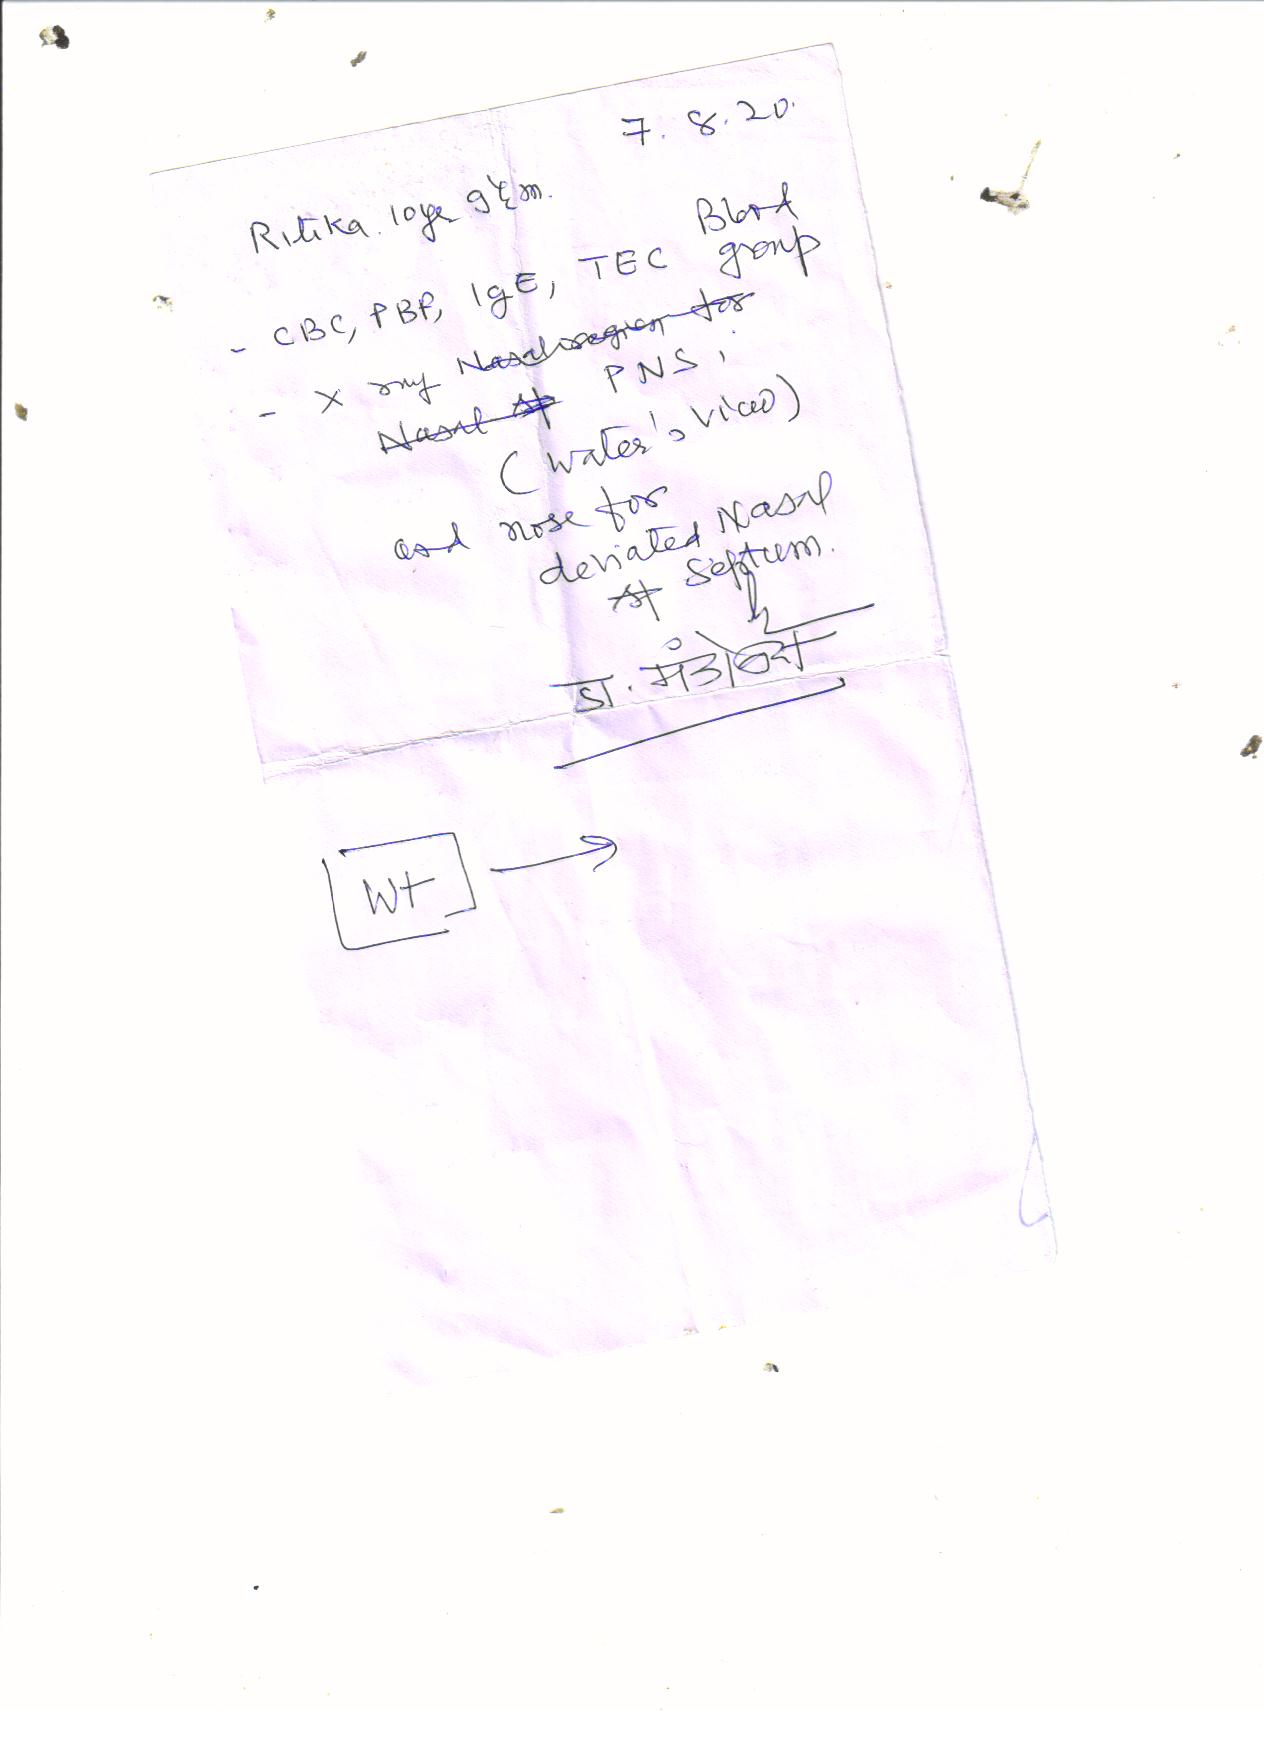 7. 8. 20.
Ritika. 10yr
- CBC, PBF, IgE, TEC Blood group
- X ray Nasal for
Nasal PNS.
(Water's View)
and nose for
deviated Nasal
Septum.
डा.
Wt →